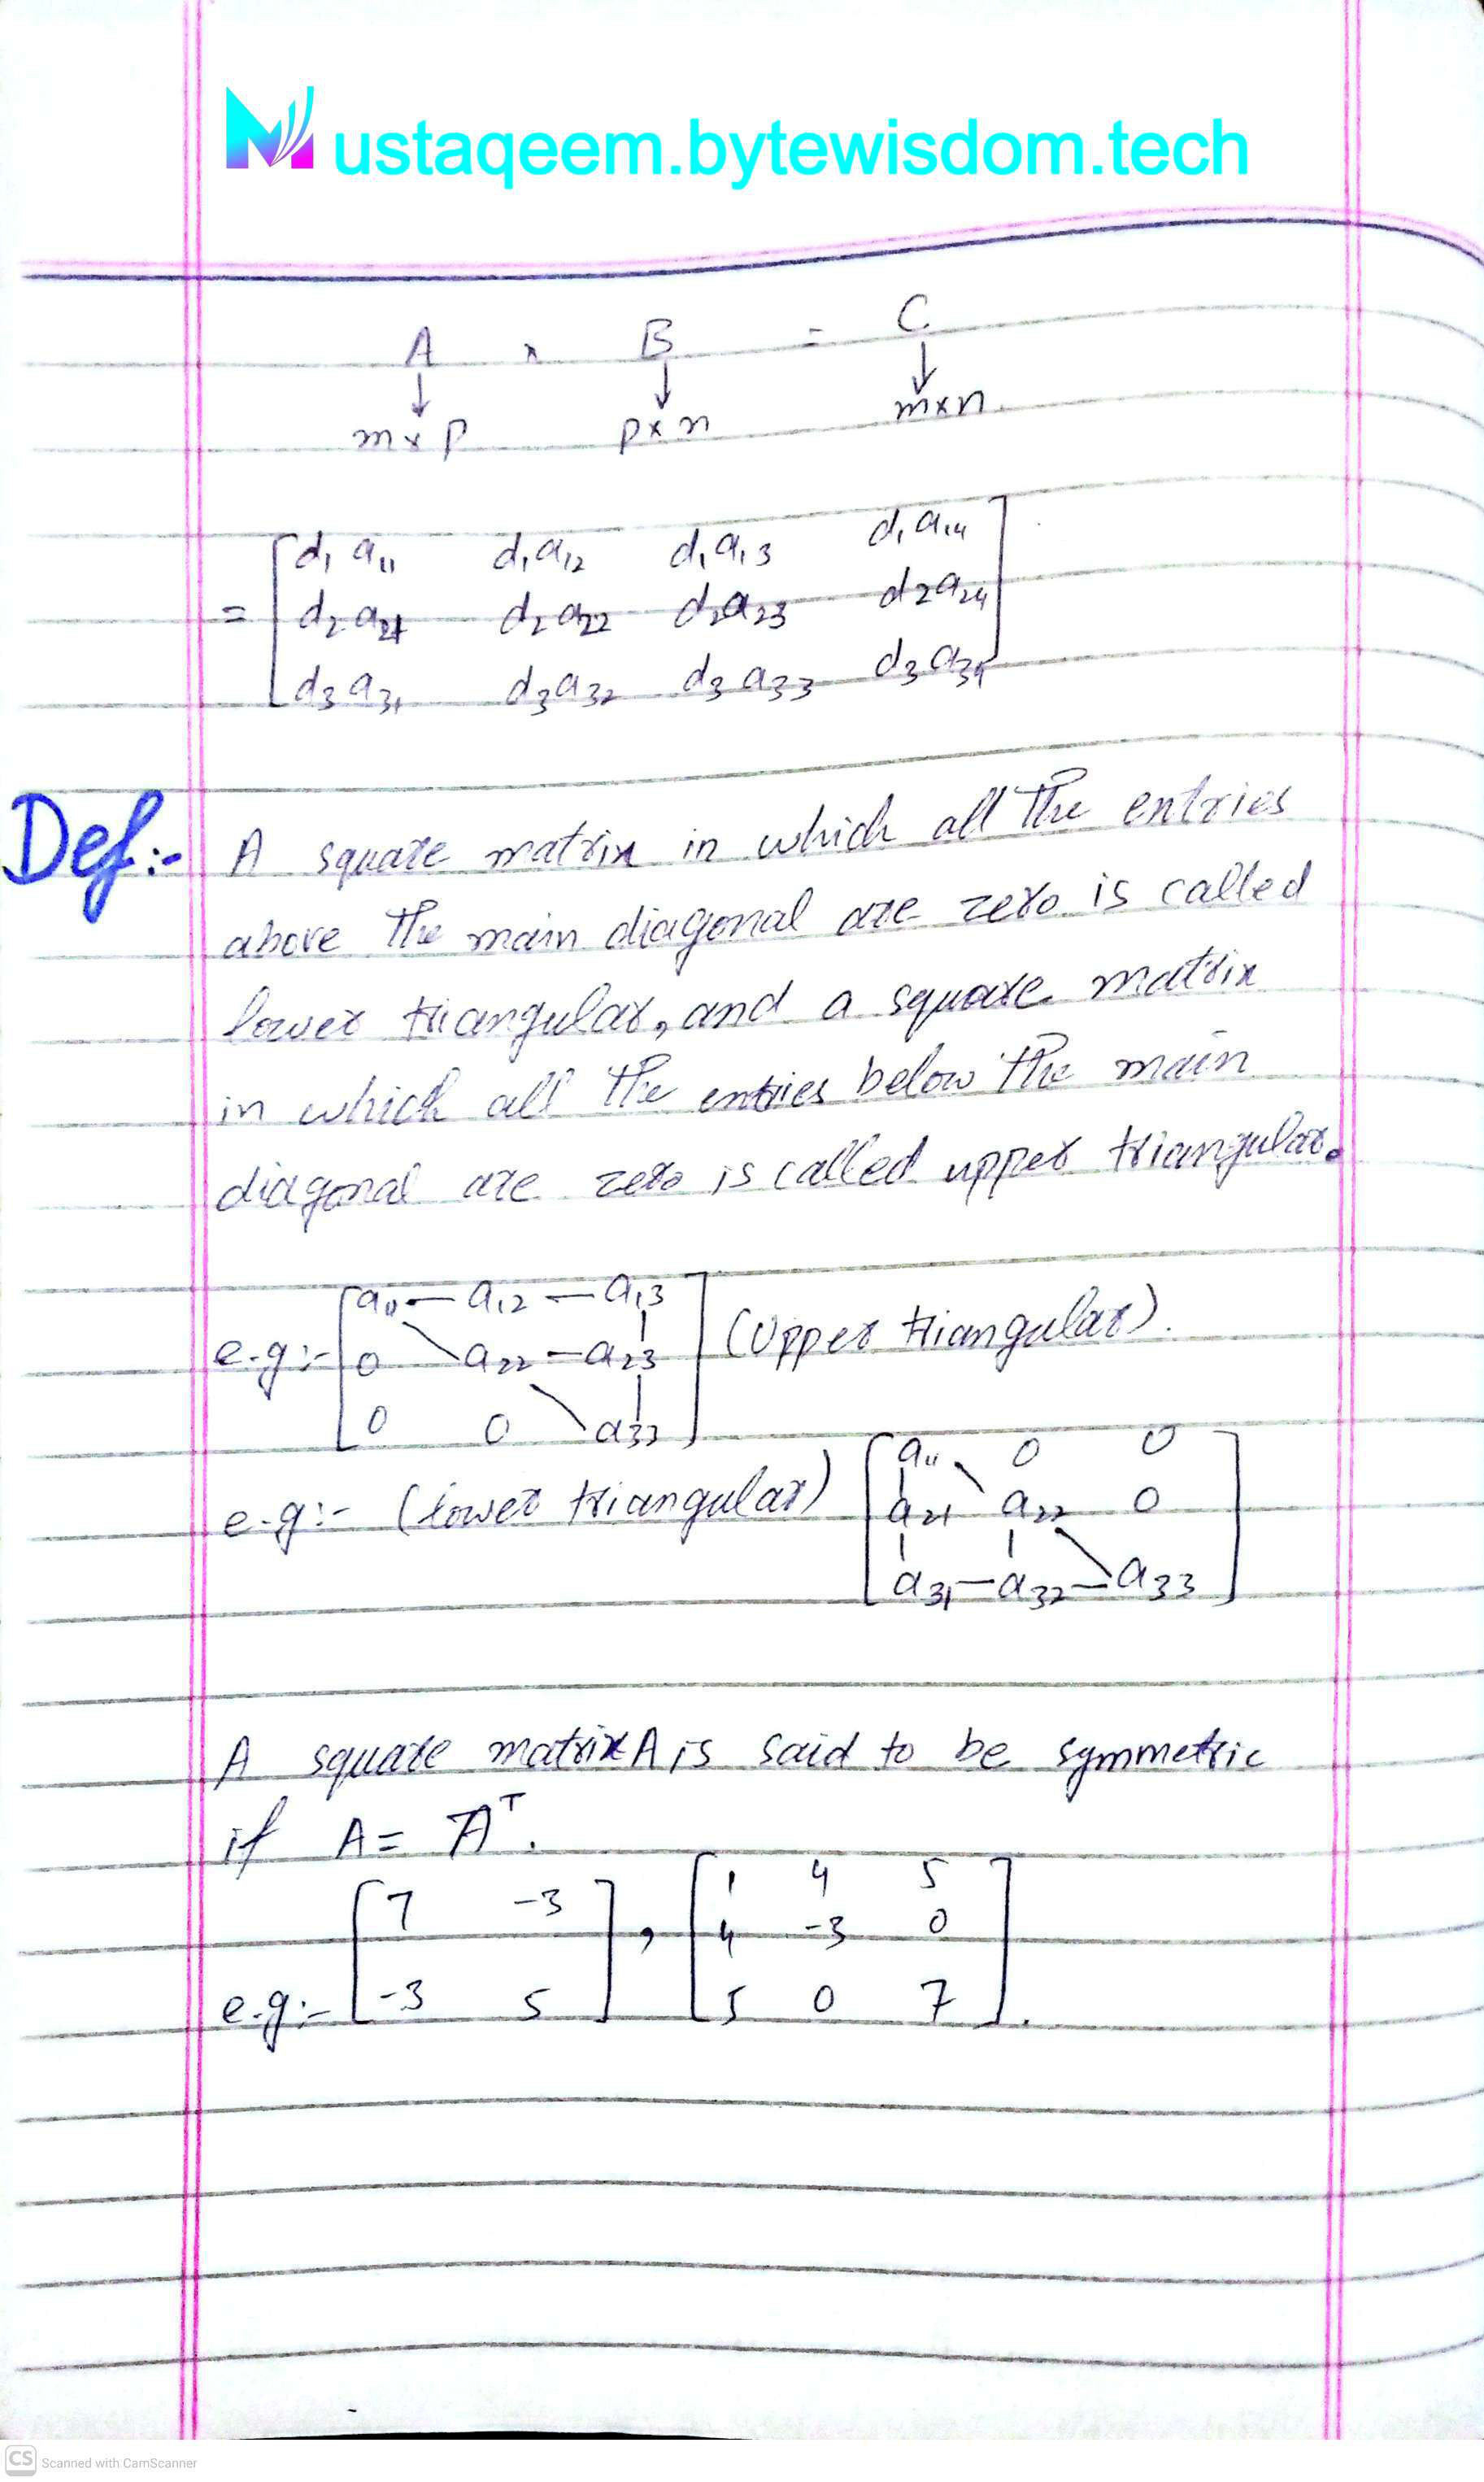 Mustaqeem.bytewisdom.tech
A × B = C
↓ ↓ ↓
m×p p×n m×n.
= [d₁a₁₁ d₁a₁₂ d₁a₁₃ d₁a₁₄
d₂a₂₁ d₂a₂₂ d₂a₂₃ d₂a₂₄
d₃a₃₁ d₃a₃₂ d₃a₃₃ d₃a₃₄]
Def:- A square matrix in which all the entries
above the main diagonal are zero is called
lower triangular, and a square matrix
in which all the entries below the main
diagonal are zero is called upper triangular.
e.g:- [a₁₁ — a₁₂ — a₁₃
0 a₂₂ — a₂₃
0 0 a₃₃] (Upper triangular).
e.g:- (lower triangular) [a₁₁ 0 0
a₂₁ a₂₂ 0
a₃₁ — a₃₂ — a₃₃]
A square matrix A is said to be symmetric
if A = Aᵀ.
e.g:- [7 -3
-3 5] , [1 4 5
4 -3 0
5 0 7].
CS Scanned with CamScanner